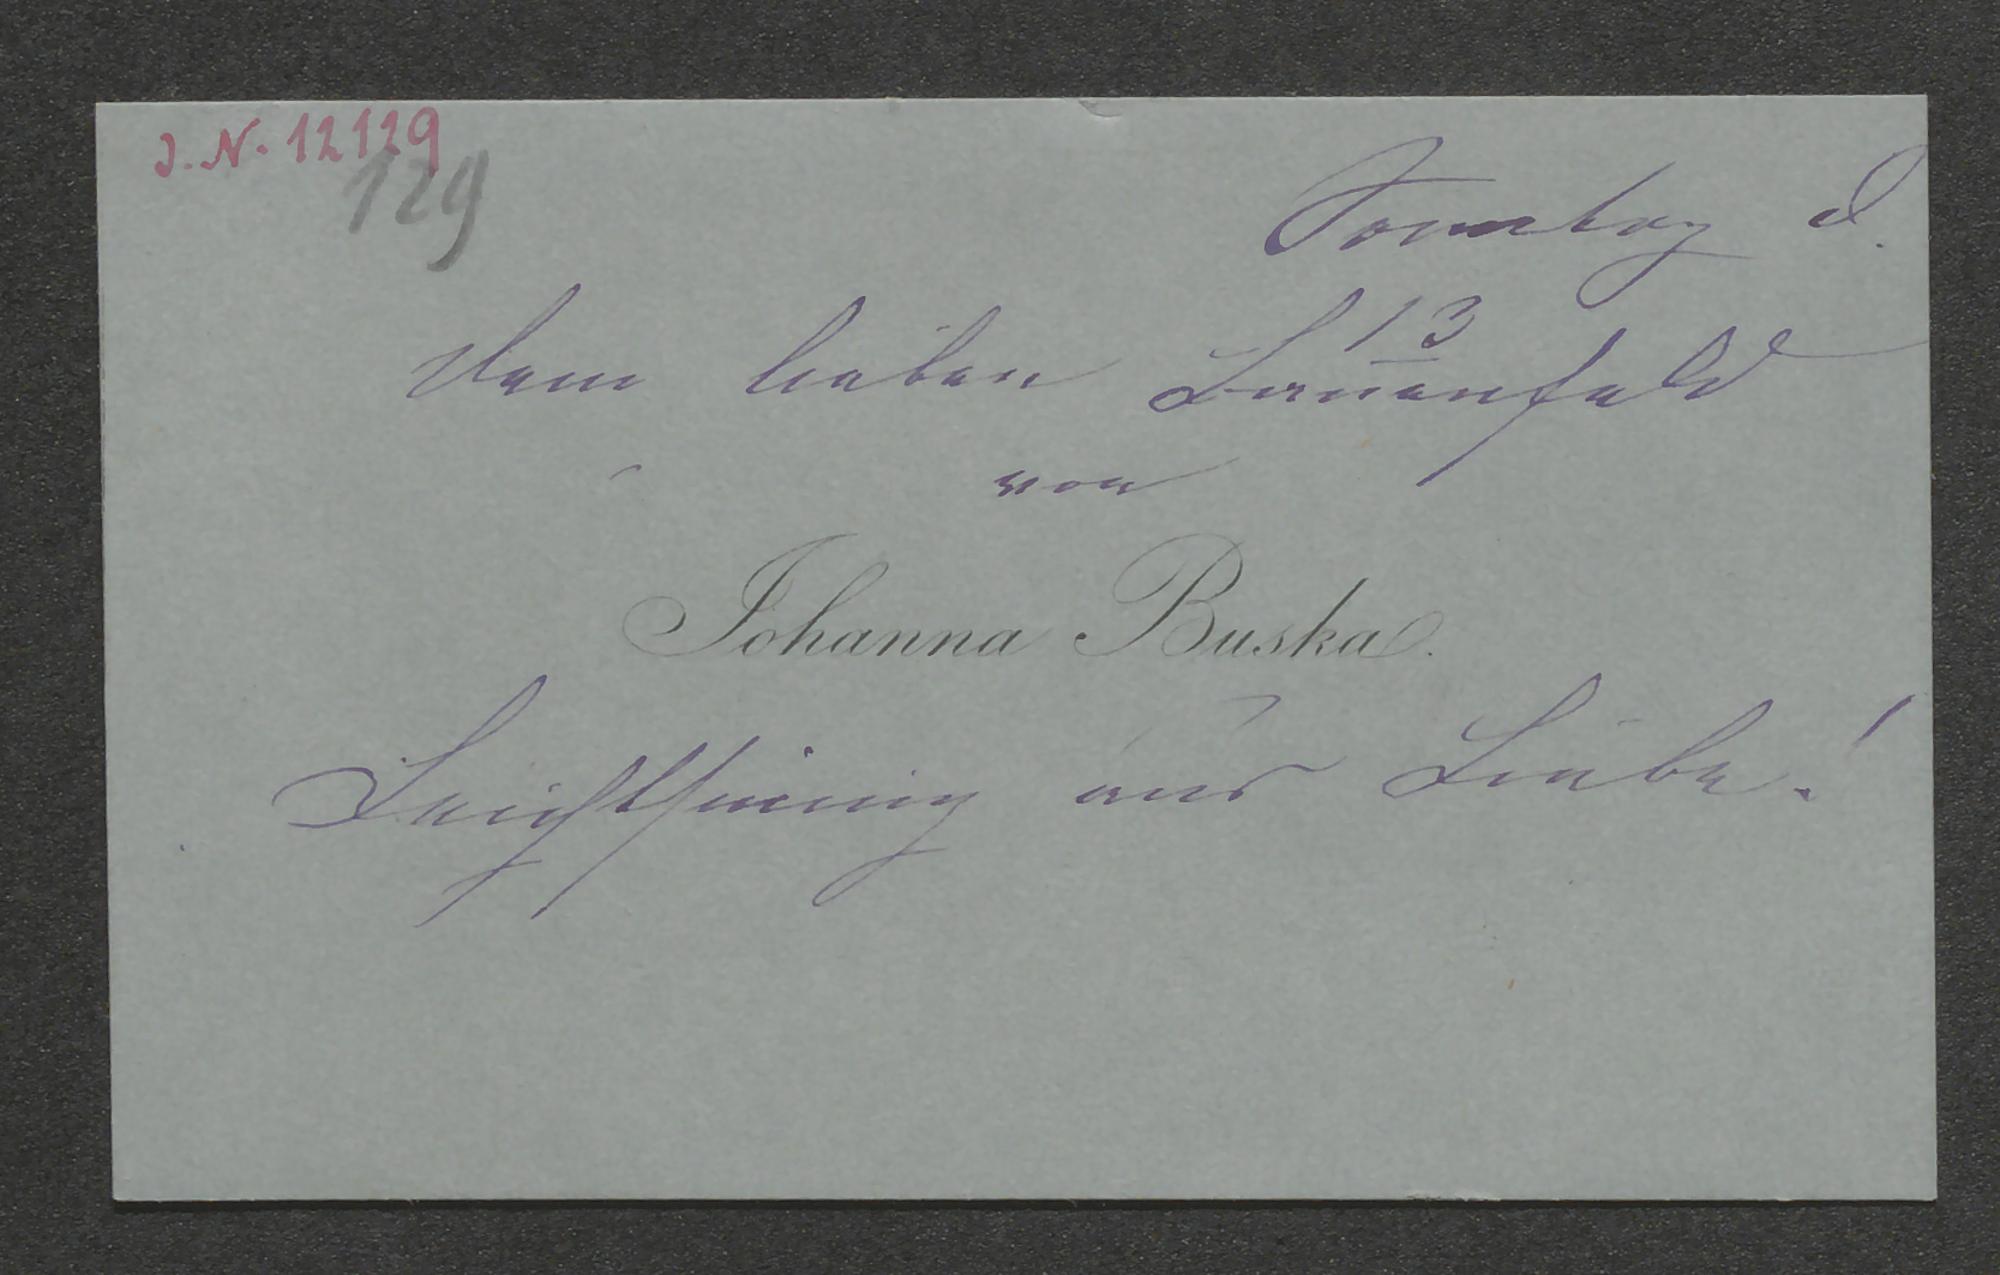 J. N. 12129
129
Sonntag d.
13
dem lieben Lewenfeld
von
Johanna Buska.
Leichtsinnig aus Liebe!